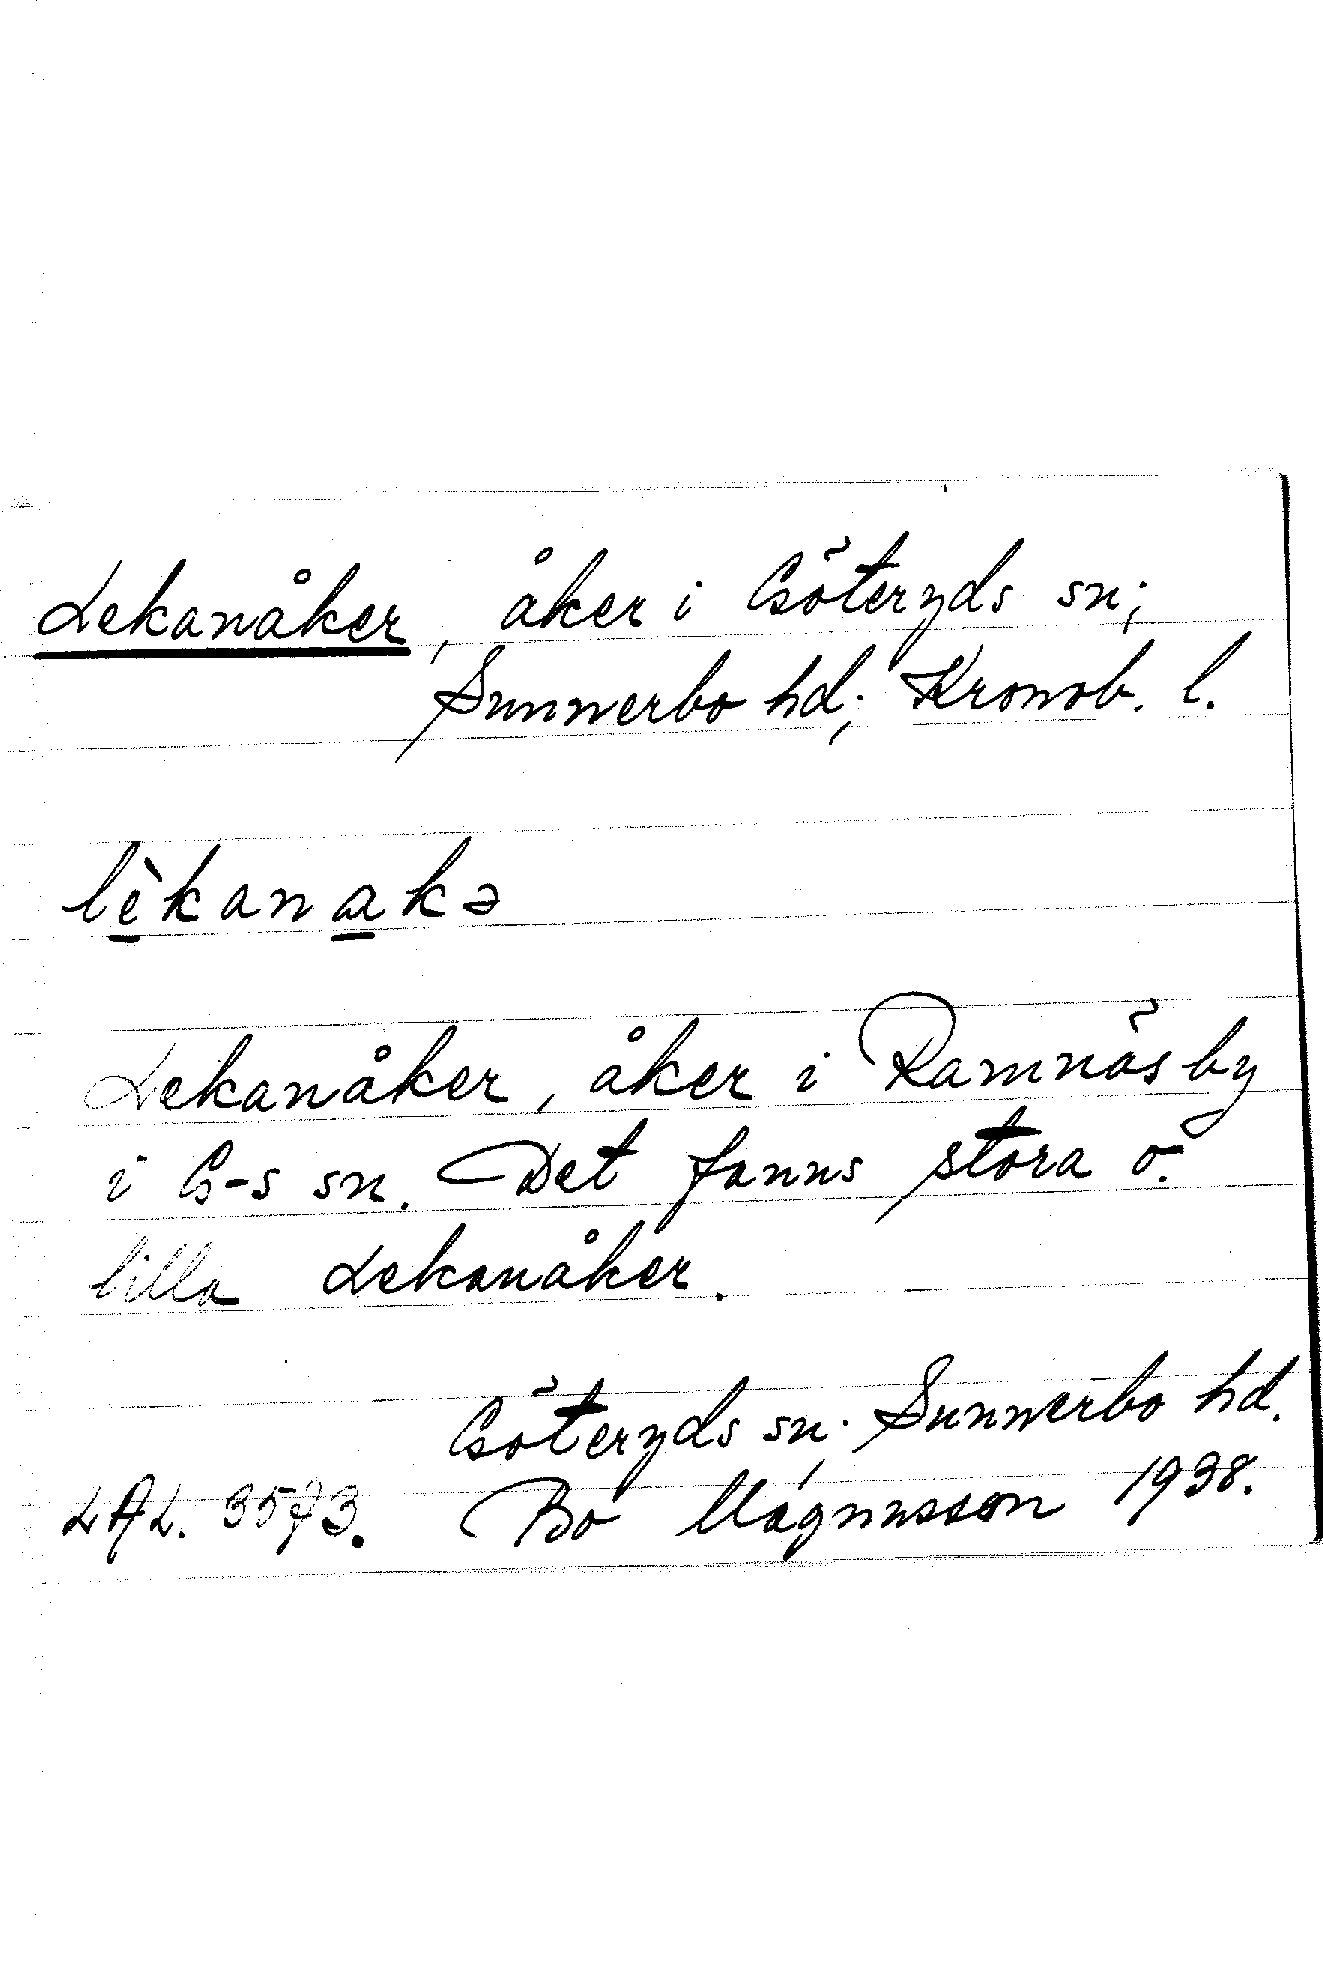 Lekanåker, åker i Göteryds sn;
Sunnerbo hd; Kronob. l.
lèkanakə
Lekanåker, åker i Ramnäs by
i G-s sn. Det fanns stora o.
lilla Lekanåker.
Göteryds sn; Sunnerbo hd.
LAL. 3573. Bo Magnusson 1938.